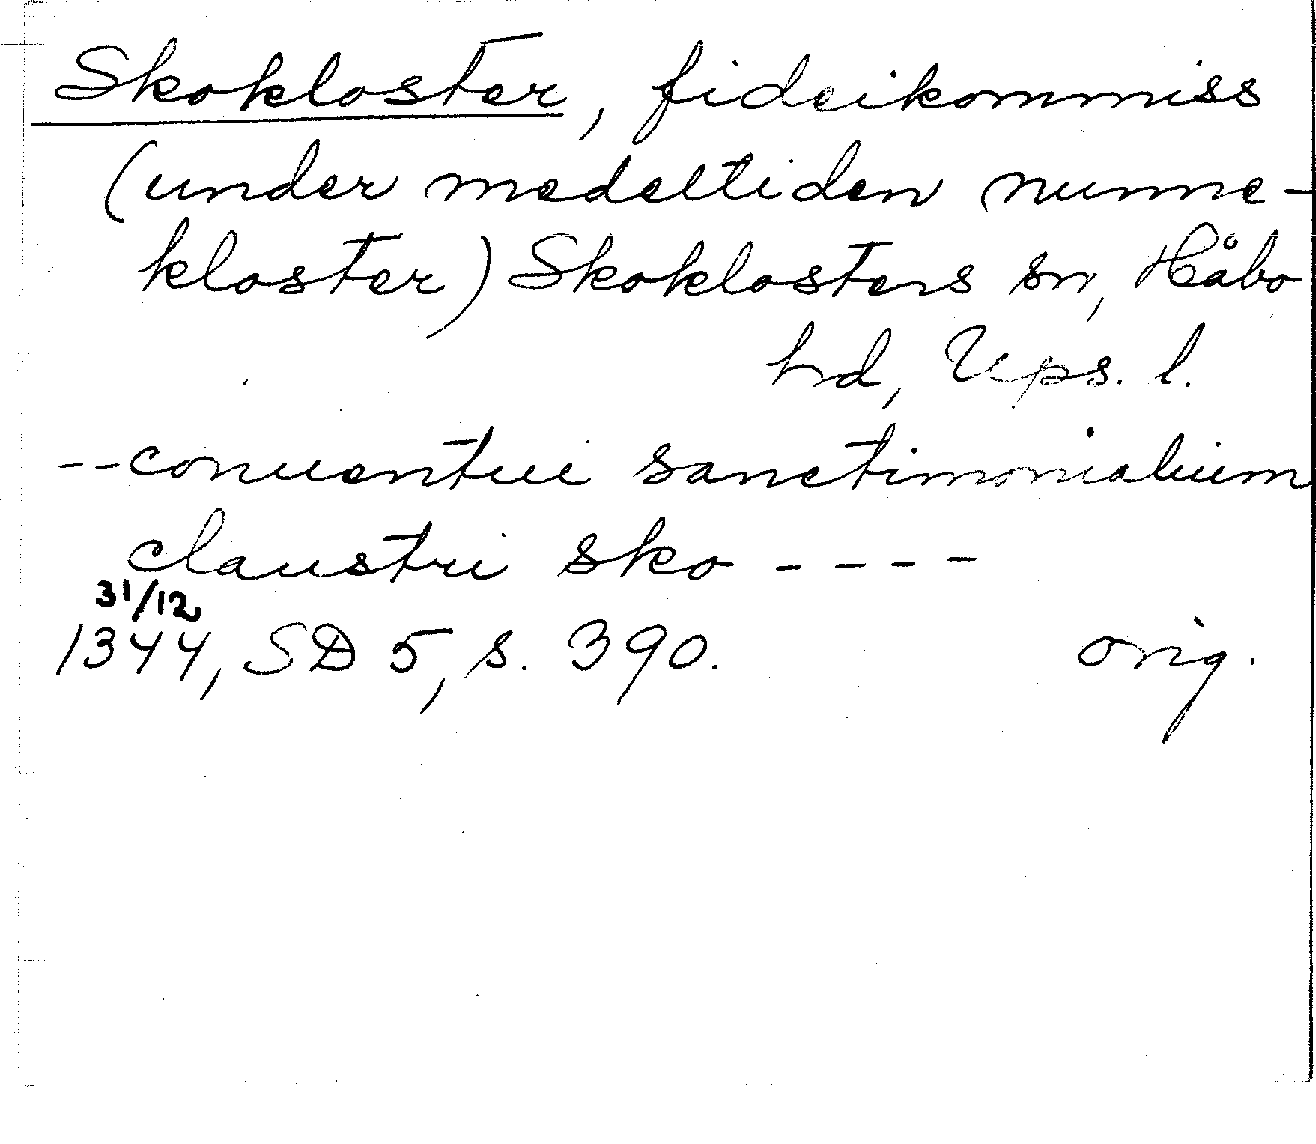 Skokloster, fideikommiss
(under medeltiden nunne-
kloster) Skoklosters sn, Håbo
hd, Ups. l.
--conuentui sanctimonialium
claustri sko ----
31/12
1344, SD 5, s. 390. orig.